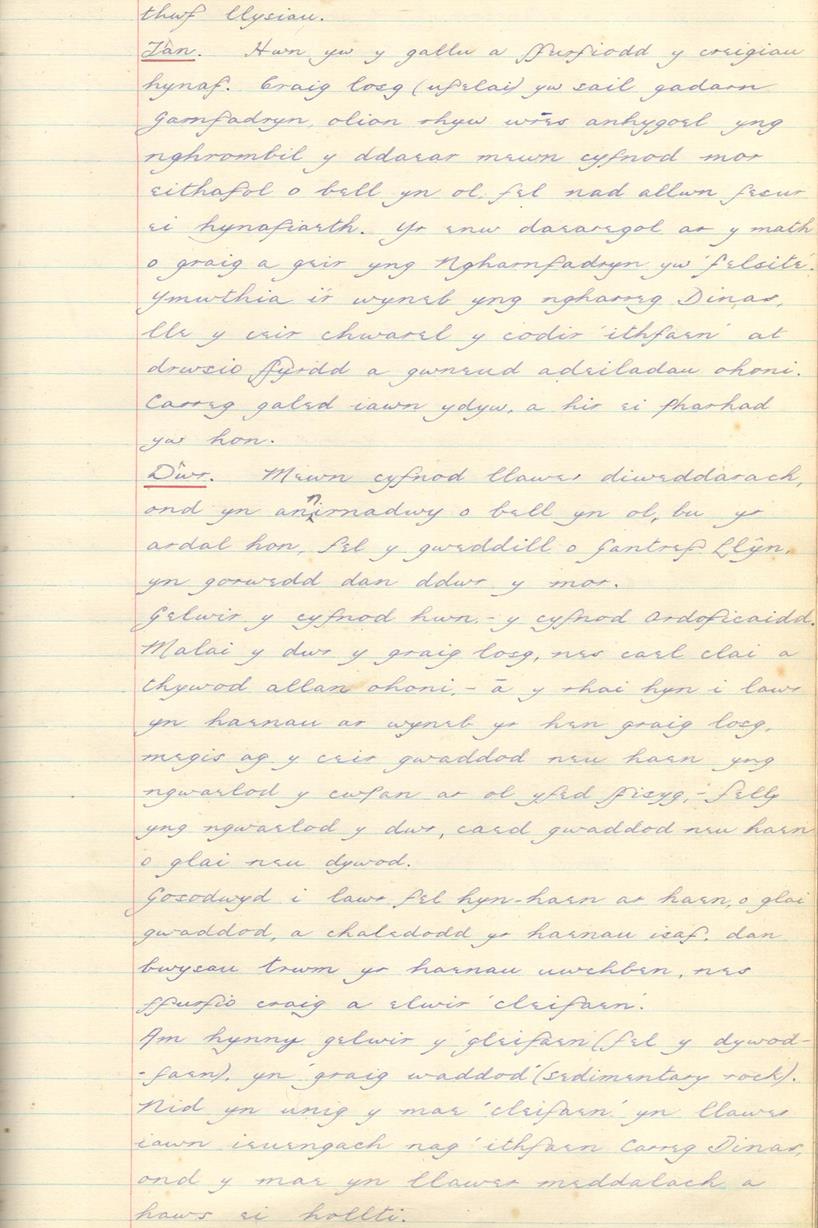 thwf llysiau.
Tân. Hwn yw y gallu a ffurfiodd y creigiau
hynaf. Craig losg (ufelai) yw sail gadarn
Garnfadryn, olion rhyw wrês anhygoel yng
nghrombil y ddaear mewn cyfnod mor
eithafol o bell yn ol, fel nad allwn fesur
ei hynafiaeth. Yr enw daearegol ar y math
o graig a geir yng Ngharnfadryn yw 'felsite'.
Ymwthia i'r wyneb yng ngharreg Dinas,
lle y ceir chwarel y codir 'ithfaen' at
drwsio ffyrdd a gwneud adeiladau ohoni.
Carreg galed iawn ydyw, a hir ei pharhad
yw hon.
Dŵr. Mewn cyfnod llawer diweddarach,
ond yn anhirnadwy o bell yn ol, bu yr
ardal hon, fel y gweddill o Gantref Llŷn,
yn gorwedd dan ddwr y mor.
Gelwir y cyfnod hwn,- y cyfnod Ordoficaidd.
Malai y dwr y graig losg, nes cael clai a
thywod allan ohoni,- â y rhai hyn i lawr
yn haenau ar wyneb yr hen graig losg,
megis ag y ceir gwaddod neu haen yng
ngwaelod y cwpan ar ol yfed ffisyg,- felly
yng ngwaelod y dwr, caed gwaddod neu haen
o glai neu dywod.
Gosodwyd i lawr fel hyn-haen ar haen, o glai
gwaddod, a chaledodd yr haenau isaf, dan
bwysau trwm yr haenau uwchben, nes
ffurfio craig a elwir 'cleifaen'.
Am hynny gelwir y 'gleifaen' (fel y dywod-
-faen), yn 'graig waddod' (sedimentary rock).
Nid yn unig y mae 'cleifaen' yn llawer
iawn ieuengach nag 'ithfaen Carreg Dinas,
ond y mae yn llawer meddalach a
haws ei hollti.